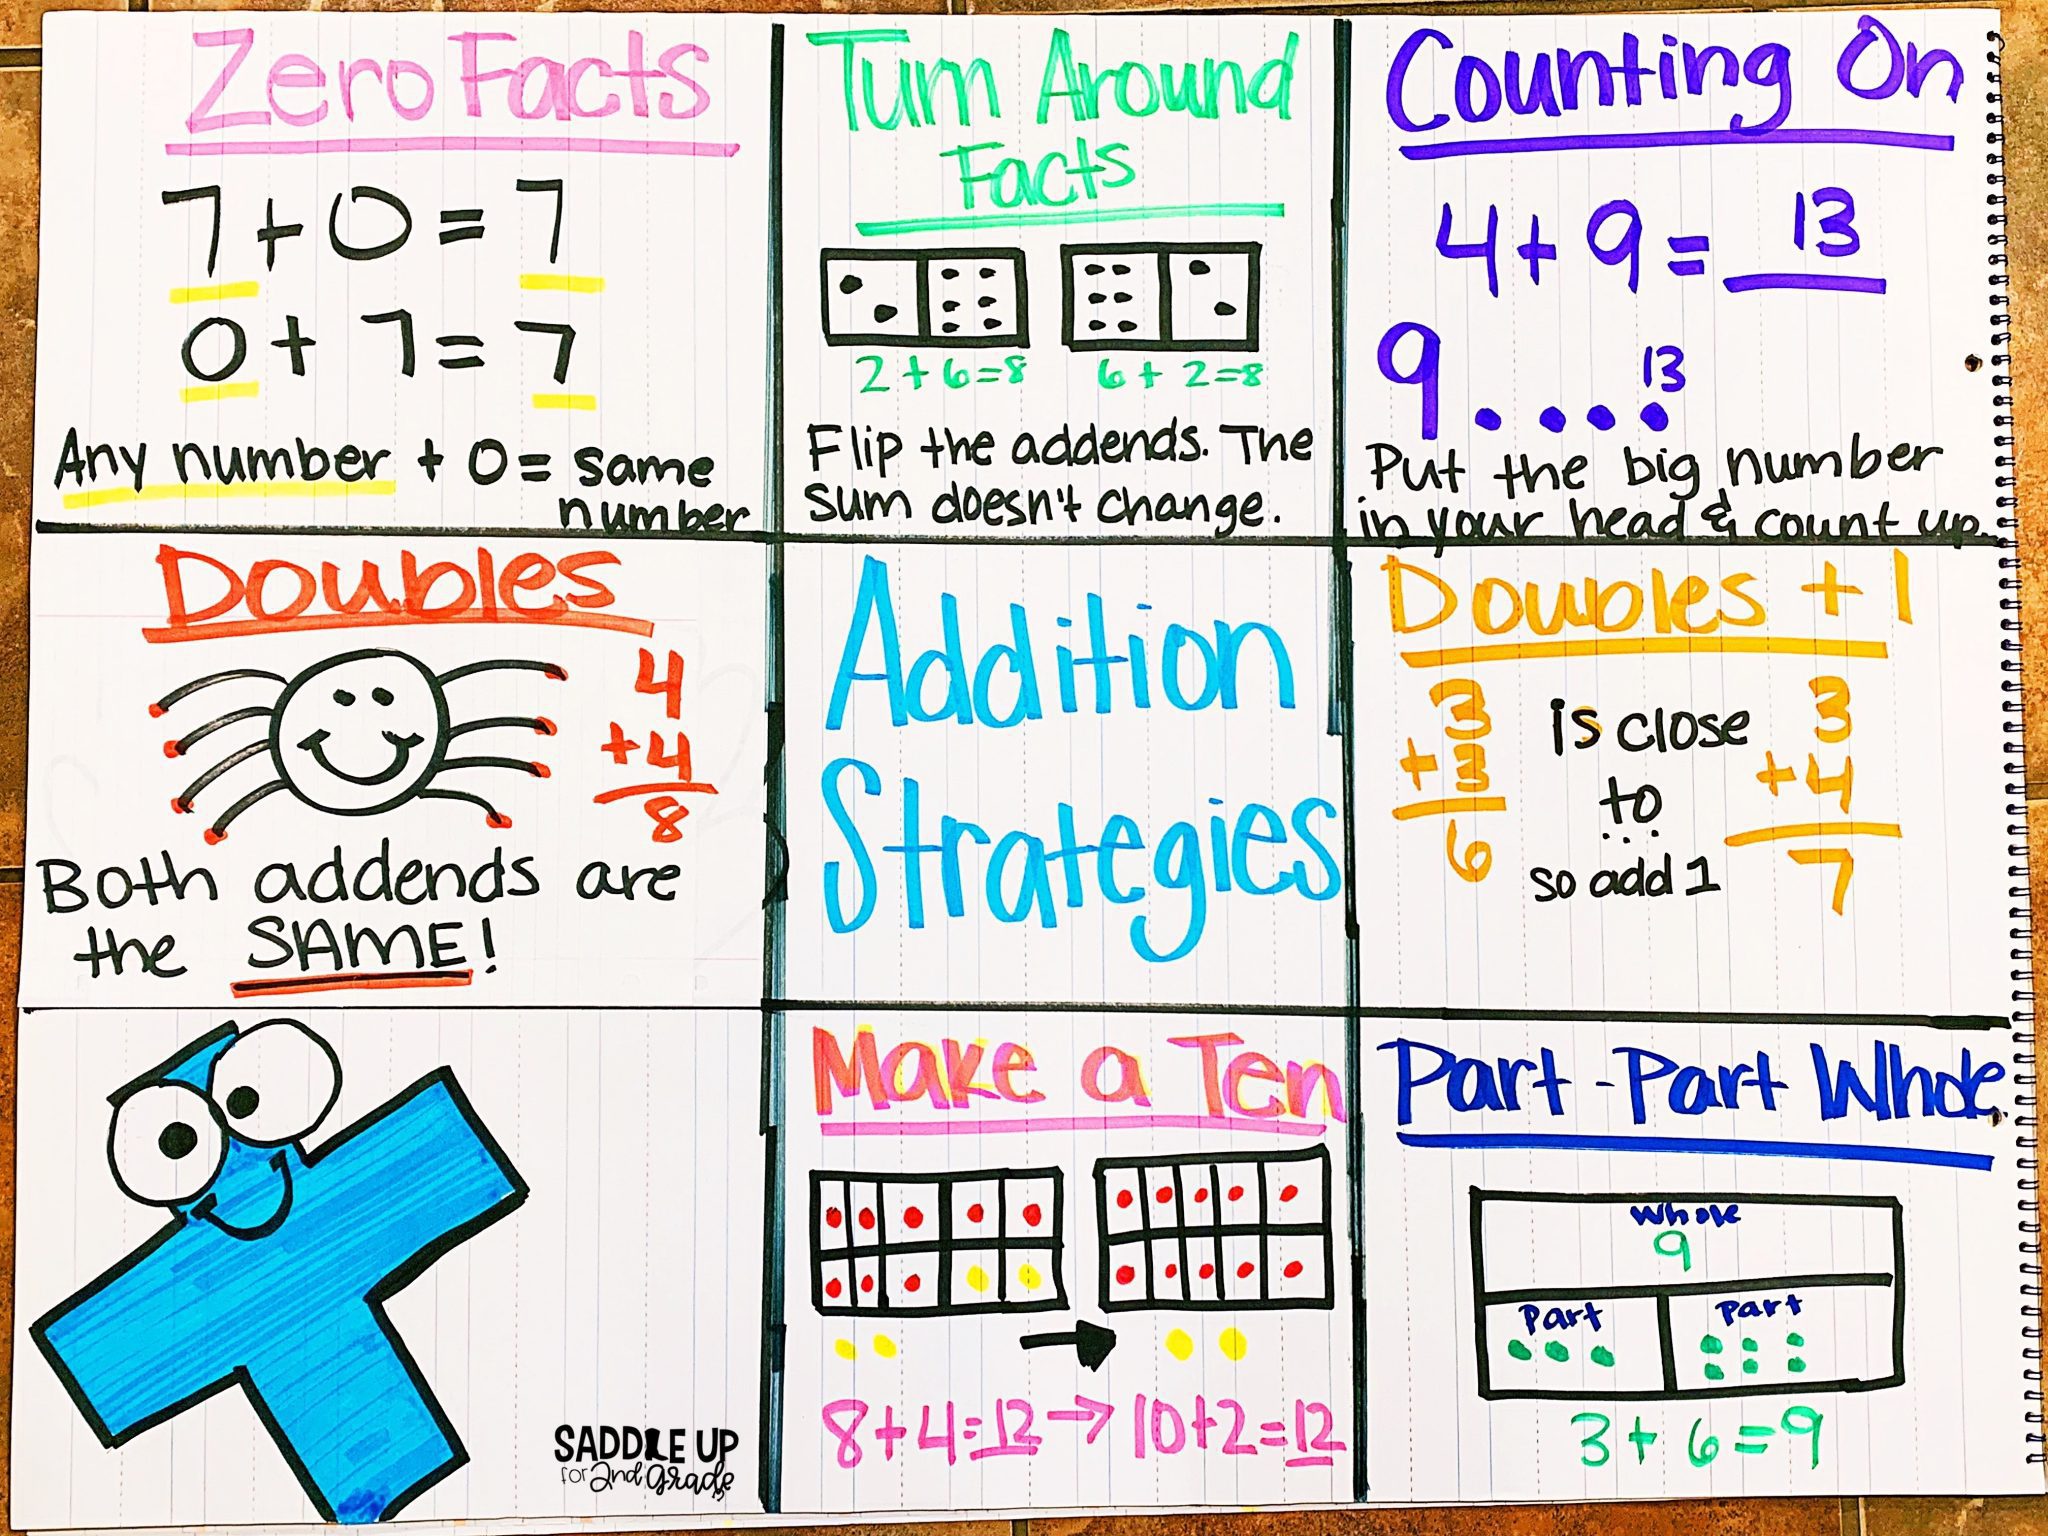 Zero Facts
7 + 0 = 7
0 + 7 = 7
Any number + 0 = same
number
Turn Around
Facts
2 + 6 = 8
6 + 2 = 8
Flip the addends. The
sum doesn't change.
Counting On
4 + 9 = 13
9 13
Put the big number
in your head & count up.
Doubles
4
+ 4
8
Both addends are
the SAME!
Addition
Strategies
Doubles + 1
3
+ 3
6
is close
to...
so add 1
3
+ 4
7
SADDLE UP
for 2nd Grade
Make a Ten
8 + 4 = 12 → 10 + 2 = 12
Part - Part Whole
Whole
9
Part Part
3 + 6 = 9